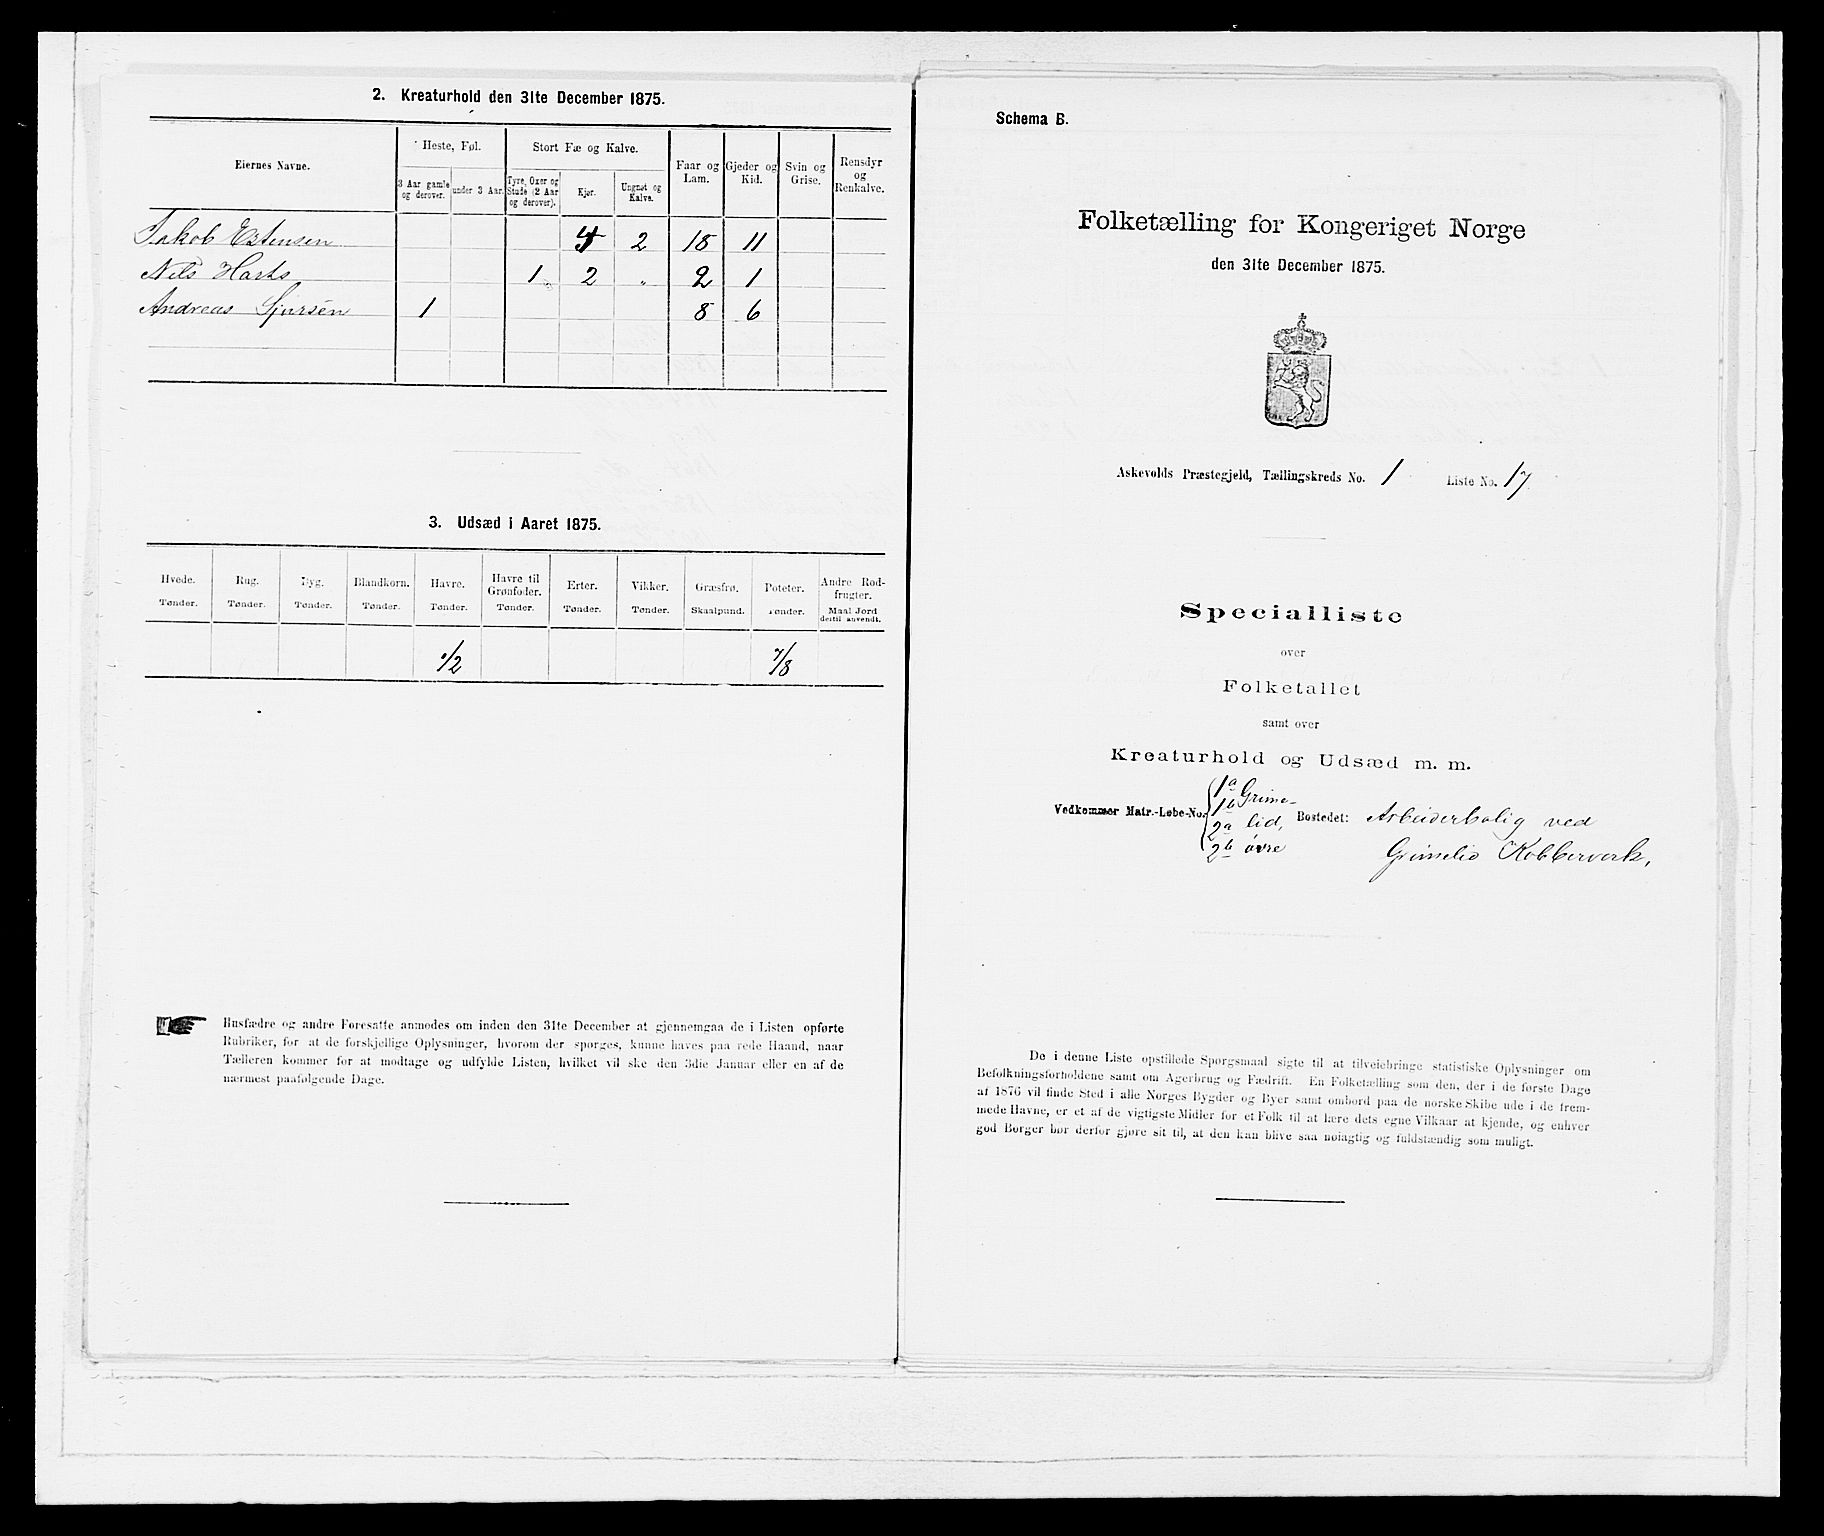 2. Kreaturhold den 31te December 1875.
Eiernes Navne.
Heste, Føl.
Stort Fæ og Kalve.
Faar og Lam.
Gjeder og Kid.
Svin og Grise.
Rensdyr og Renkalve.
3 Aar gamle og derover.
under 3 Aar.
Tyre, Oxer og Stude (2 Aar og derover).
Kjør.
Ungnøt og Kalve.
Jakob Estensen 4 2 18 11
Nils 1 2 " 2 1
Andreas Sjursen 1 8 6
3. Udsæd i Aaret 1875.
Hvede. Rug. Byg. Blandkorn. Havre. Havre til Grønfoder. Erter. Vikker. Græsfrø. Poteter. Andre Rodfrugter.
Tønder. Tønder. Tønder. Tønder. Tønder. Tønder. Tønder. Tønder. Skaalpund. Tønder. Maal Jord dertil anvendt.
1/2 7/8
Husfædre og andre Foresatte anmodes om inden den 31te December at gjennemgaa de i Listen opførte
Rubriker, for at de forskjellige Oplysninger, hvorom der spørges, kunne haves paa rede Haand, naar
Tælleren kommer for at modtage og udfylde Listen, hvilket vil ske den 3die Januar eller en af de
nærmest paafølgende Dage.
Schema B.
Folketælling for Kongeriget Norge
den 31te December 1875.
Askevolds Præstegjeld, Tællingskreds No. 1 Liste No. 17.
Specialliste
over
Folketallet
samt over
Kreaturhold og Udsæd m. m.
Vedkommer Matr.-Løbe-No. 1a 1b 2a 2b Grimelid, øvre Bostedet: Arbeiderbolig ved
Grimelid Kobberverk,
De i denne Liste opstillede Spørgsmaal sigte til at tilveiebringe statistiske Oplysninger om
Befolkningsforholdene samt om Agerbrug og Fædrift. En Folketælling som den, der i de første Dage
af 1876 vil finde Sted i alle Norges Bygder og Byer samt ombord paa de norske Skibe ude i de frem-
mede Havne, er et af de vigtigste Midler for et Folk til at lære dets egne Vilkaar at kjende, og enhver
god Borger bør derfor gjøre sit til, at den kan blive saa nøiagtig og fuldstændig som muligt.